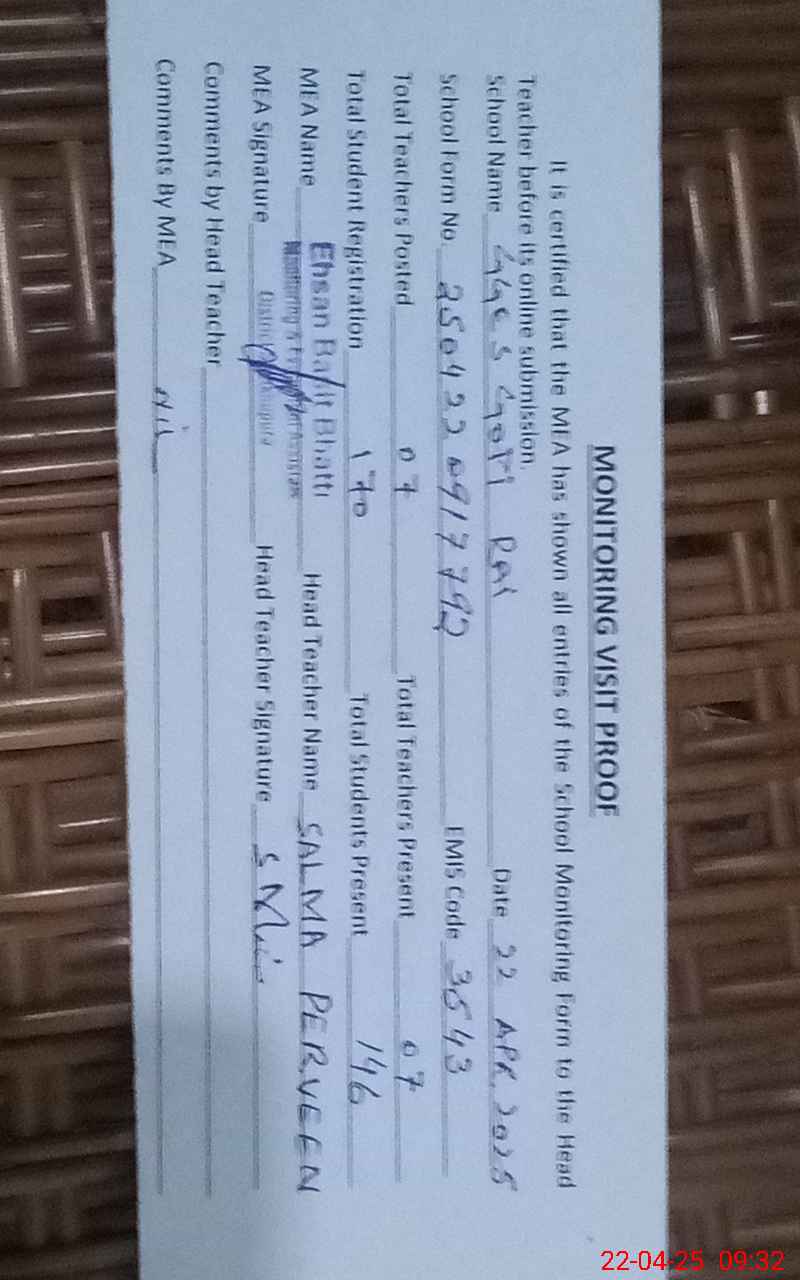 MONITORING VISIT PROOF
It is certified that the MEA has shown all entries of the School Monitoring Form to the Head
Teacher before its online submission.
School Name GGES Gopi Rai Date 22 APR 2025
School Form No. 2504220917792 EMIS Code 3543
Total Teachers Posted 07 Total Teachers Present 07
Total Student Registration 170 Total Students Present 146
MEA Name Ehsan Basit Bhatti Head Teacher Name SALMA PERVEEN
Monitoring &
MEA Signature District Head Teacher Signature
Comments by Head Teacher
Comments By MEA Nil
22-04-25 09:32